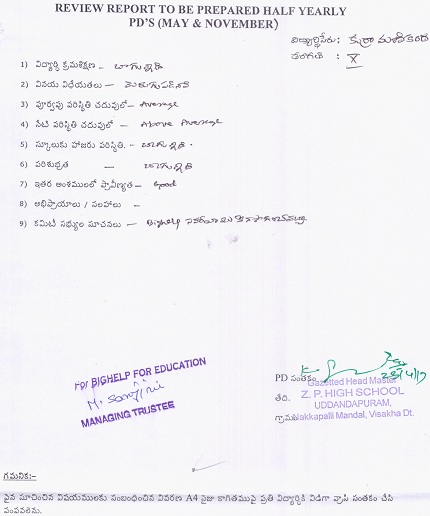 REVIEW REPORT TO BE PREPARED HALF YEARLY
PD'S (MAY & NOVEMBER)
విద్యార్థిపేరు:
తరగతి : X
1) విద్యార్థి క్రమశిక్షణ – బాగున్నది
2) వినయ విధేయతలు –
3) పూర్వపు పరిస్థితి చదువులో – Average
4) నేటి పరిస్థితి చదువులో – Above Average
5) స్కూలుకు హాజరు పరిస్థితి. – బాగున్నది.
6) పరిశుభ్రత – బాగున్నది
7) ఇతర అంశములలో ప్రావీణ్యత – Good
8) అభిప్రాయాలు / సలహాలు –
9) కమిటీ సభ్యుల సూచనలు – Bighelp
For BIGHELP FOR EDUCATION
MANAGING TRUSTEE
PD సంతకం
Gazetted Head Master
తేది. Z. P. HIGH SCHOOL
UDDANDAPURAM,
గ్రామం Nakkapalli Mandal, Visakha Dt.
గమనిక:-
పైన సూచించిన విషయములకు సంబంధించిన వివరణ A4 సైజు కాగితముపై ప్రతి విద్యార్థికి విడిగా వ్రాసి సంతకం చేసి
పంపవలెను.